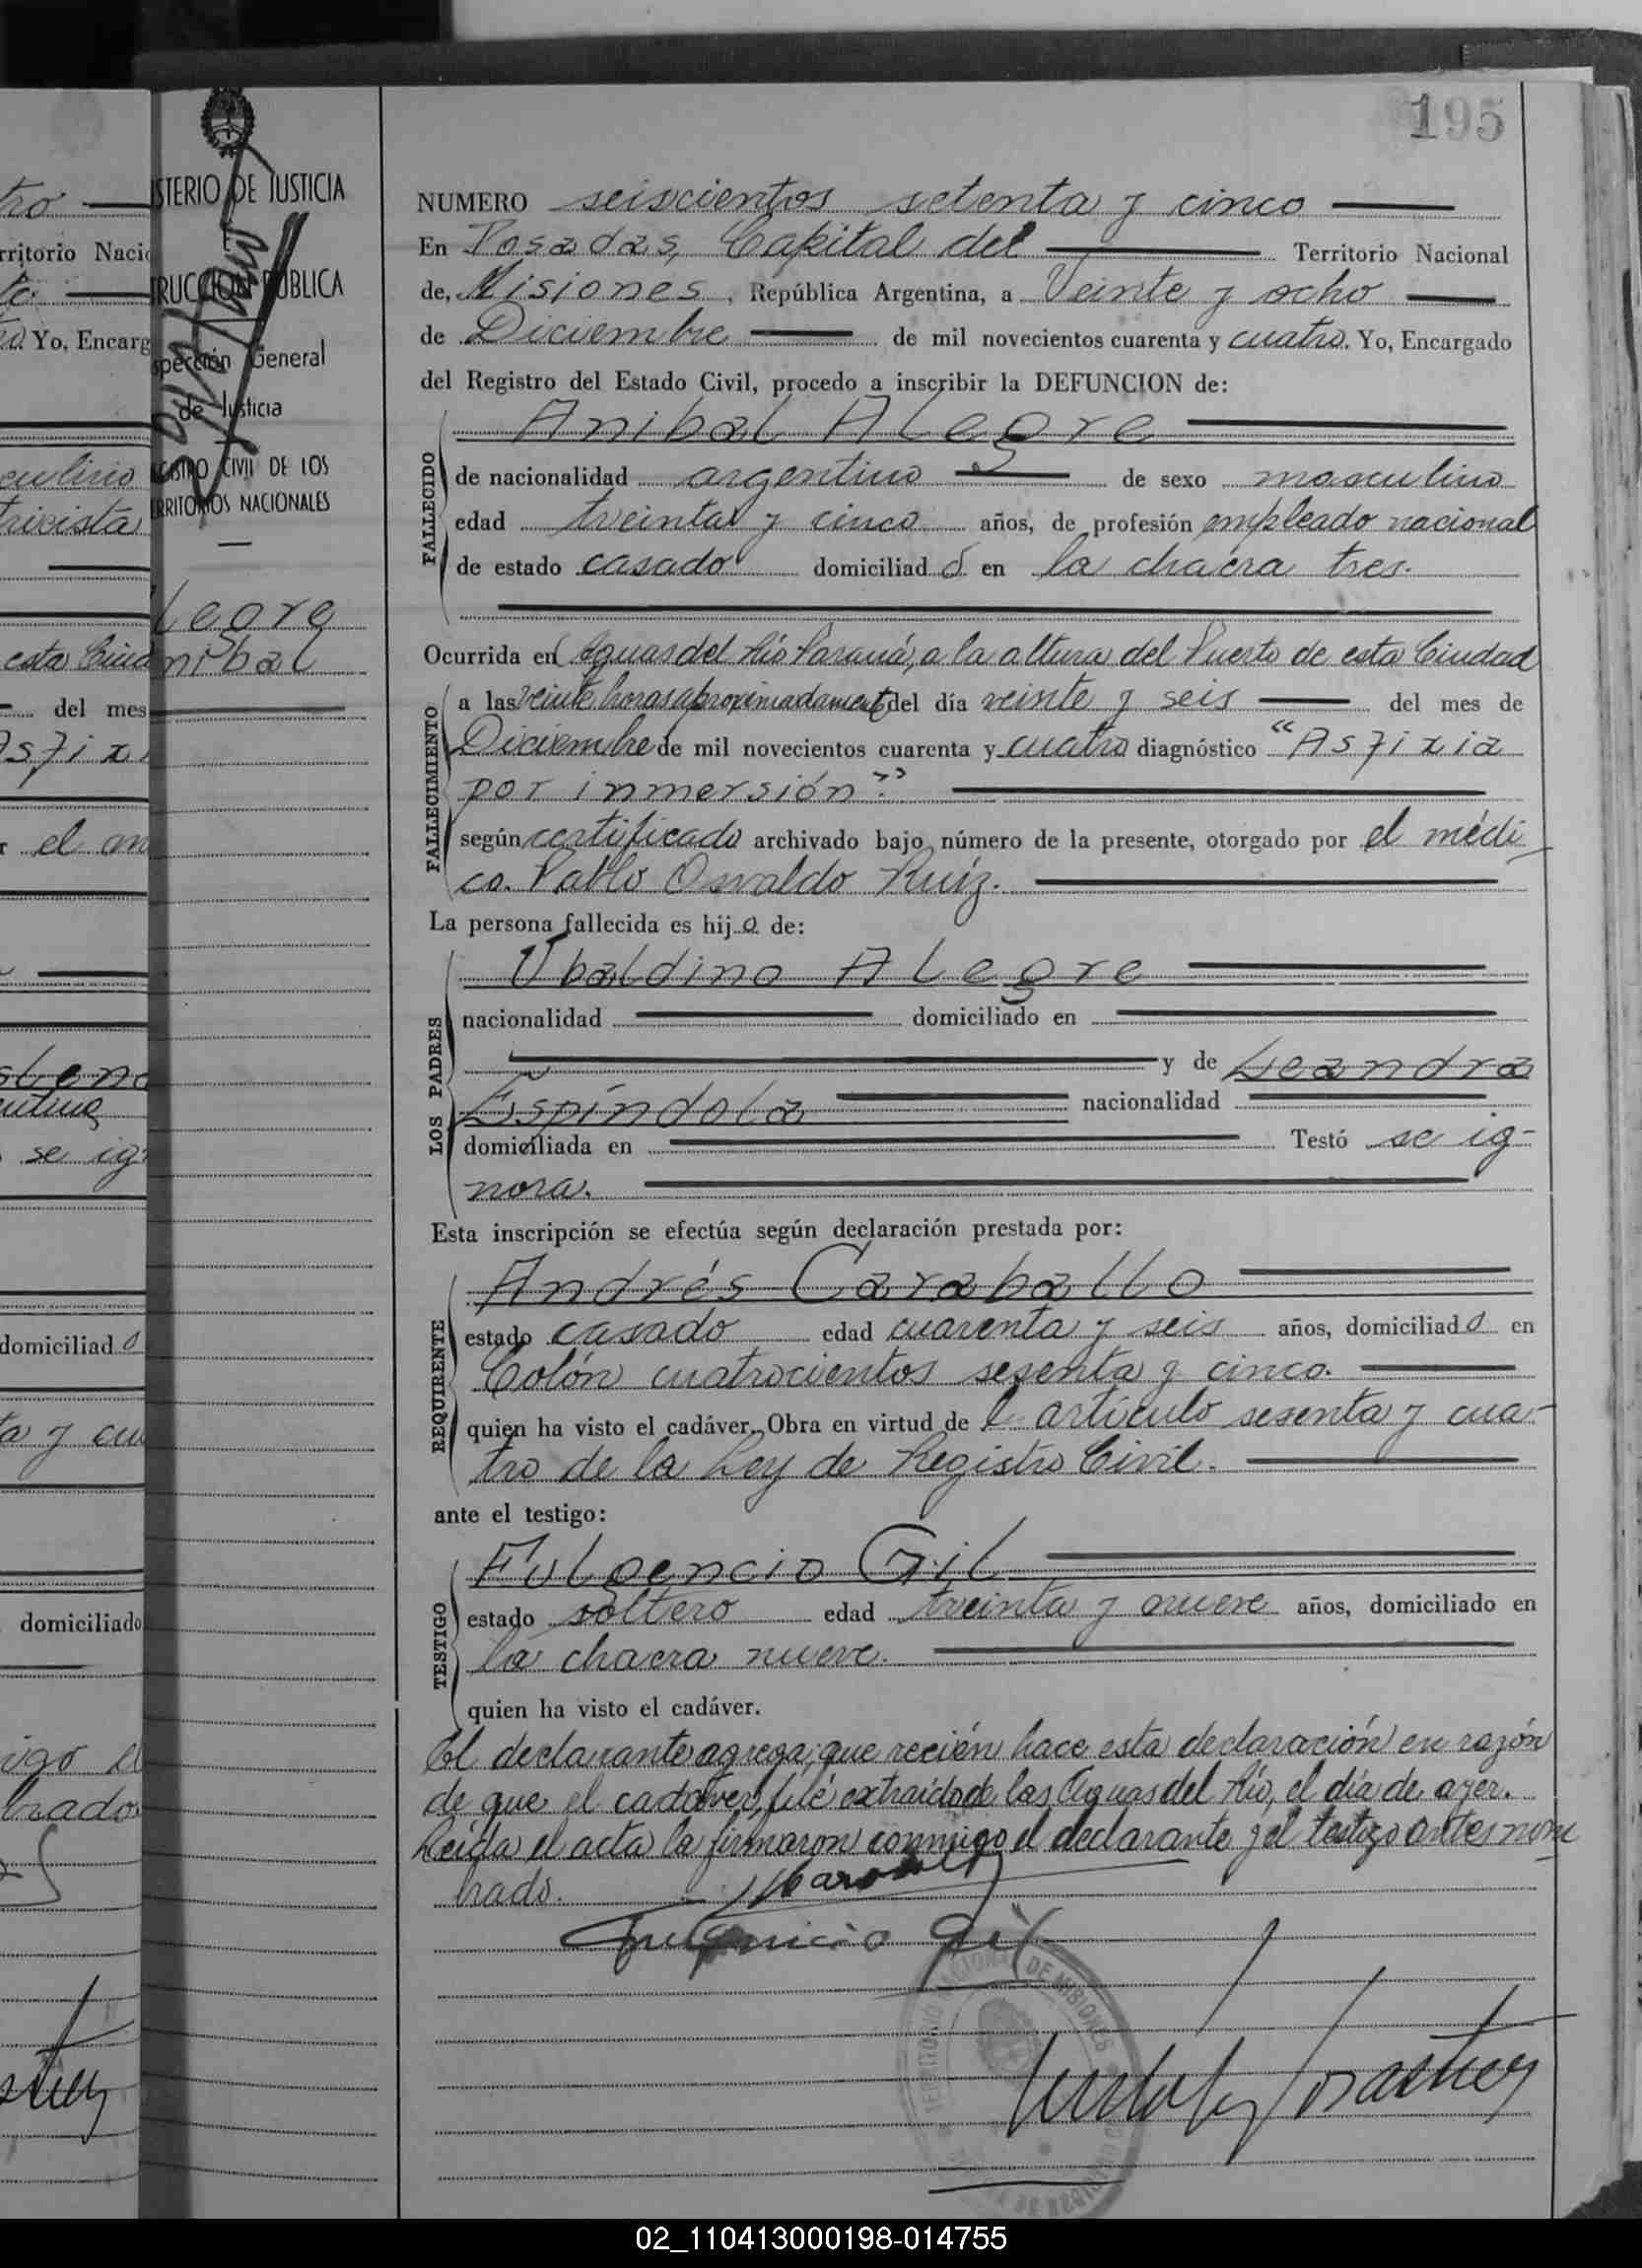 195
STERIO DE JUSTICIA
TRUCCION PUBLICA
spección General
de Justicia
GISTRO CIVIL DE LOS
ERRITORIOS NACIONALES
legre
nibal
tro
rritorio Naci
Yo, Encarg
culino
tricista
esta Ciud
del mes
Asfixi
r el m
se ig
domiciliad o
domiciliado
NUMERO seiscientos setenta y cinco
En Posadas, Capital del Territorio Nacional
de, Misiones, República Argentina, a Veinte y ocho
de Diciembre de mil novecientos cuarenta y cuatro. Yo, Encargado
del Registro del Estado Civil, procedo a inscribir la DEFUNCION de:
FALLECIDO
Anibal Alegre
de nacionalidad argentino de sexo masculino
edad treinta y cinco años, de profesión empleado nacional
de estado casado domiciliad o en la chacra tres.
Ocurrida en Aguas del Río Paraná, a la altura del Puerto de esta Ciudad
FALLECIMIENTO
a las veinte horas aproximadamente del día veinte y seis del mes de
Diciembre de mil novecientos cuarenta y cuatro diagnóstico "Asfixia
por inmersión".
según certificado archivado bajo número de la presente, otorgado por el médi
co. Pablo Osvaldo Ruíz.
La persona fallecida es hij o de:
LOS PADRES
Ubaldino Alegre
nacionalidad domiciliado en
y de Leandra
Espíndola nacionalidad
domiciliada en Testó se ig-
nora.
Esta inscripción se efectúa según declaración prestada por:
REQUIRENTE
Andrés Caraballo
estado casado edad cuarenta y seis años, domiciliado en
Colón cuatrocientos sesenta y cinco.
quien ha visto el cadáver. Obra en virtud de l artículo sesenta y cua-
tro de la Ley de Registro Civil.
ante el testigo:
TESTIGO
Fulgencio Gil
estado soltero edad treinta y nueve años, domiciliado en
la chacra nueve.
quien ha visto el cadáver.
El declarante agrega; que recién hace esta declaración en razón
de que el cadáver, fué extraído de las Aguas del Río, el día de ayer.
Leída el acta la firmaron conmigo el declarante y el testigo antes nom
brado.
Fulgencio Gil
TERRITORIO NACIONAL DE MISIONES
02_110413000198-014755